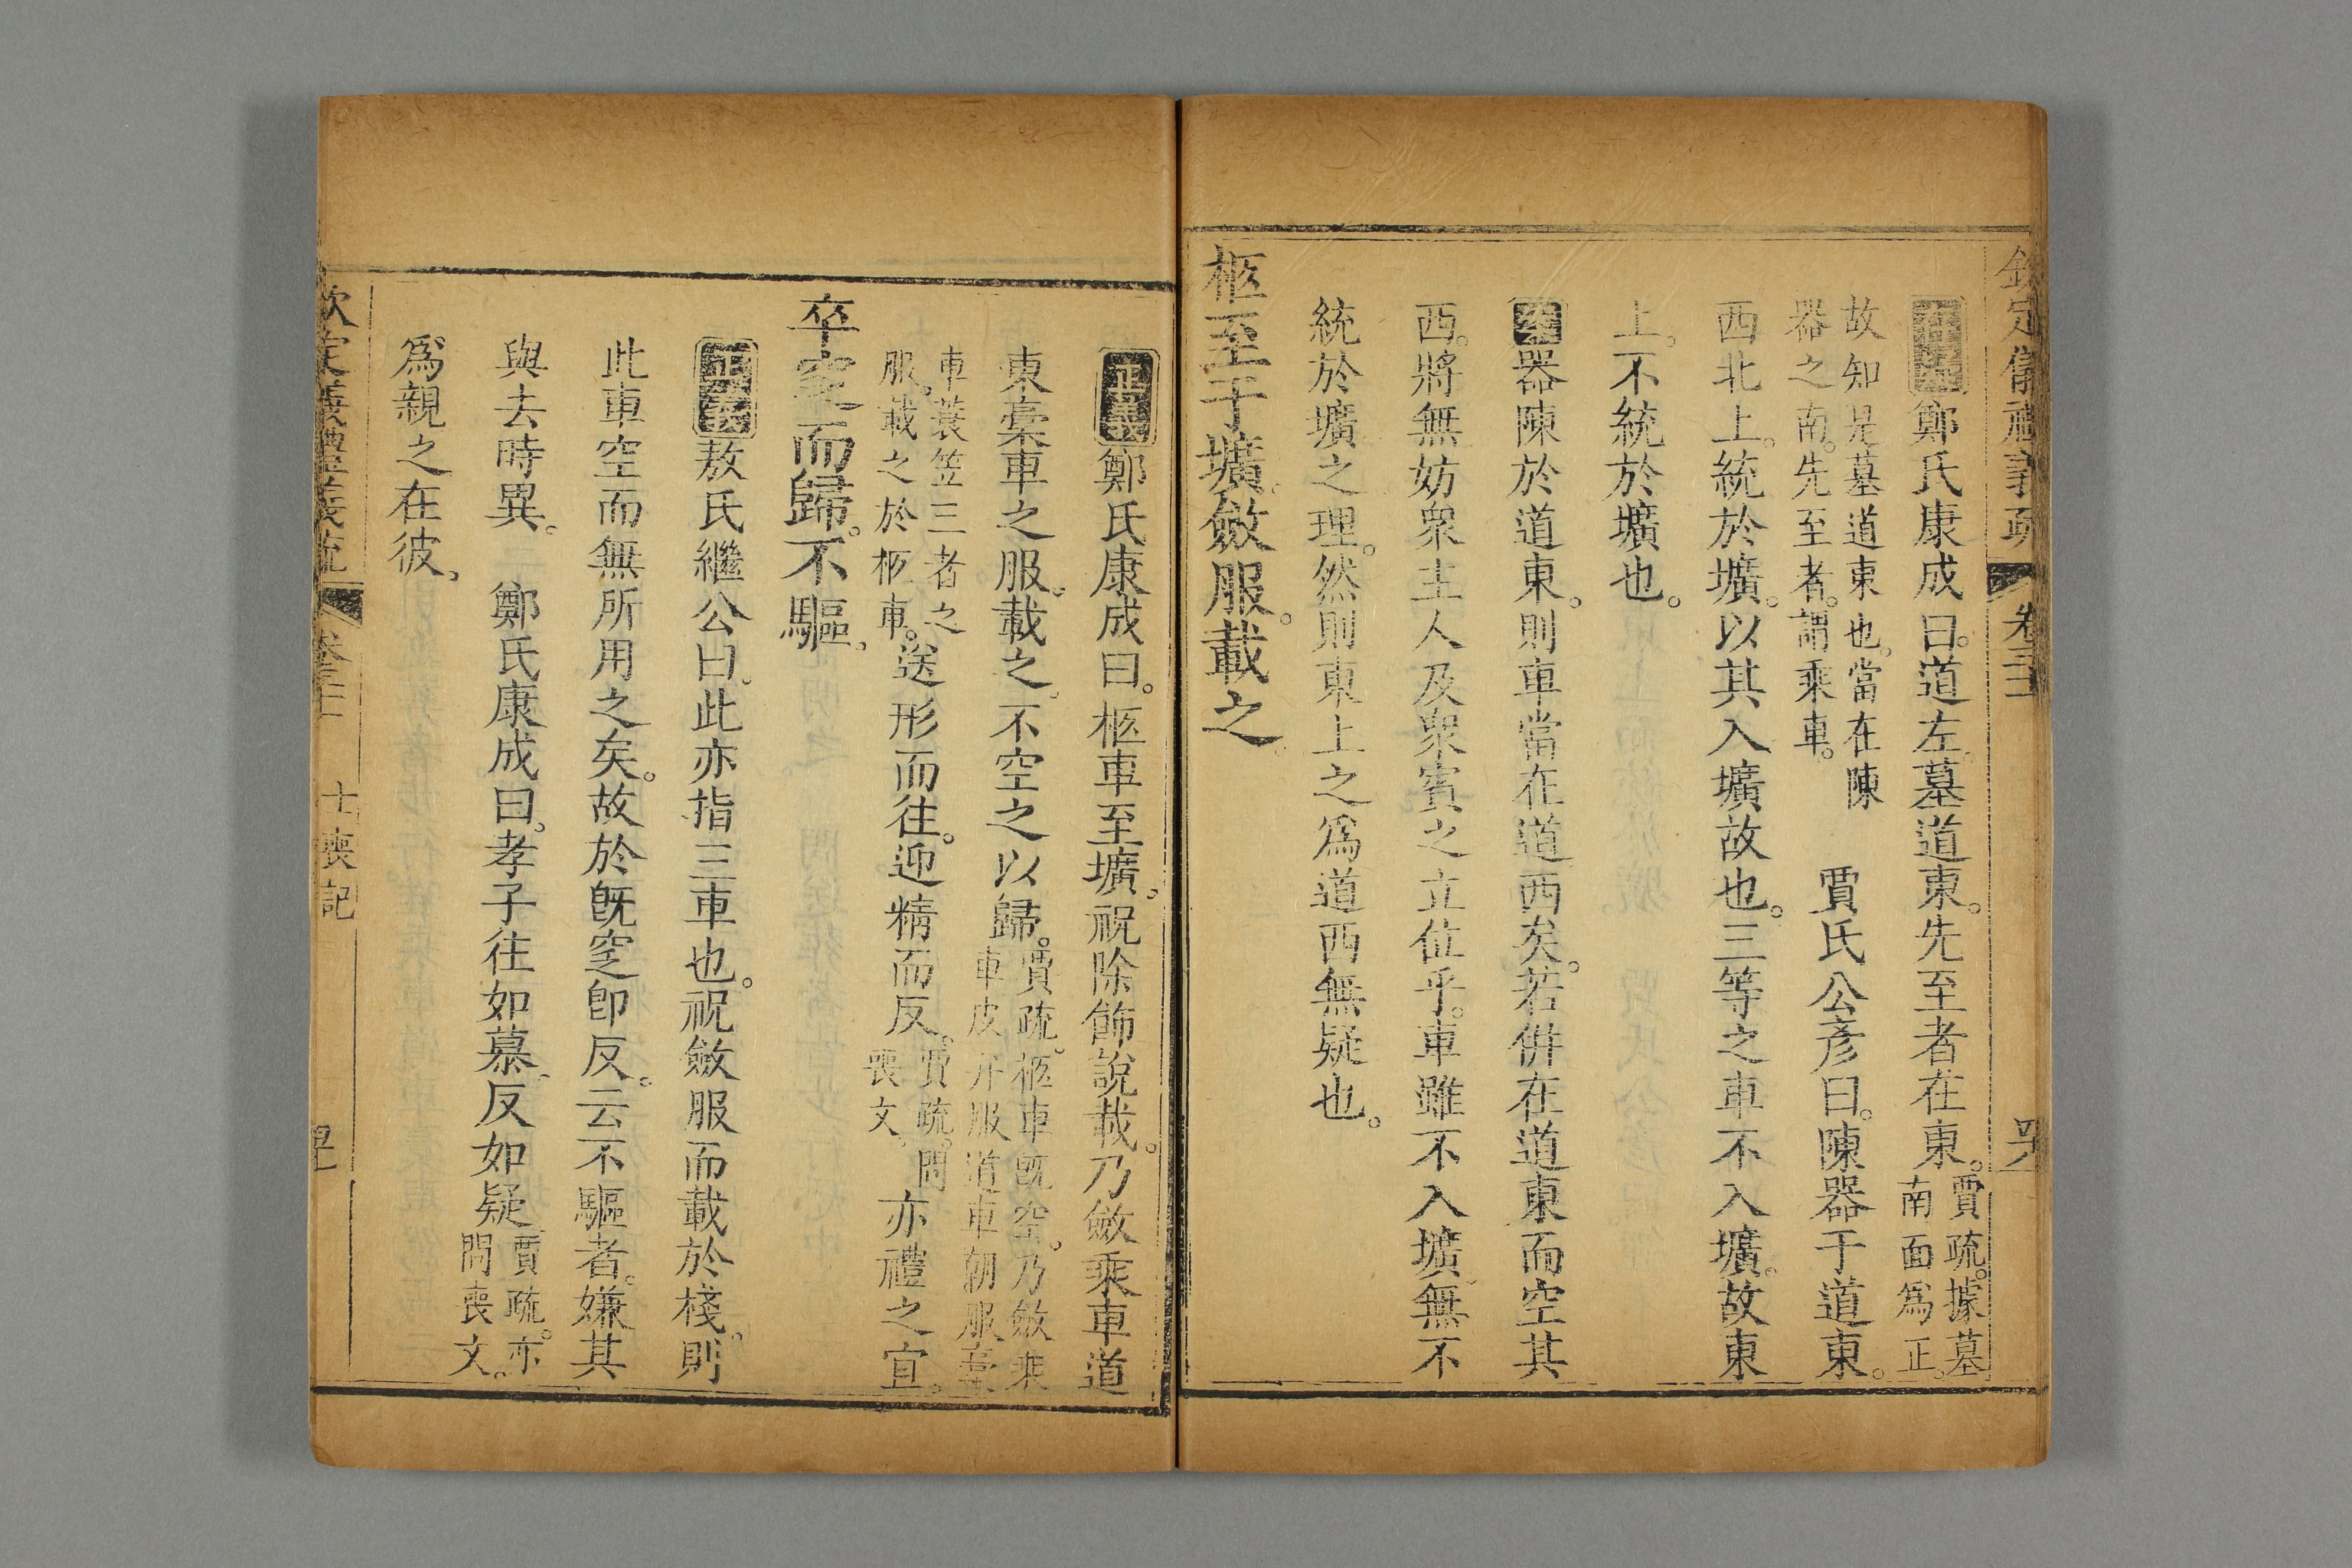 欽定儀禮義疏 卷三十二 
正義鄭氏康成曰。道左。墓道東。先至者在東。賈疏。據墓南面為正。
故知是墓道東也。當在陳器之南。先至者。謂乘車。 賈氏公彥曰。陳器于道東。
西北上。統於壙。以其入壙故也。三等之車不入壙。故東
上。不統於壙也。
案器陳於道東。則車當在道西矣。若併在道東而空其
西。將無妨眾主人及眾賓之立位乎。車雖不入壙。無不
統於壙之理。然則東上之為道西無疑也。
柩至于壙。斂服。載之。
正義鄭氏康成曰。柩車至壙。祝除飾說載。乃斂乘車道
東槀車之服。載之。不空之以歸。賈疏。柩車既空。乃斂乘車皮弁服道車朝服槀
車蓑笠三者之服。載之於柩車。送形而往。迎精而反。賈疏。問喪文。亦禮之宜。
卒窆而歸。不驅。
正義敖氏繼公曰。此亦指三車也。祝斂服而載於棧。則
此車空而無所用之矣。故於旣窆卽反。云不驅者。嫌其
與去時異。 鄭氏康成曰。孝子往如慕。反如疑。賈疏。亦問喪文。
為親之在彼。
欽定義禮義疏 士喪記